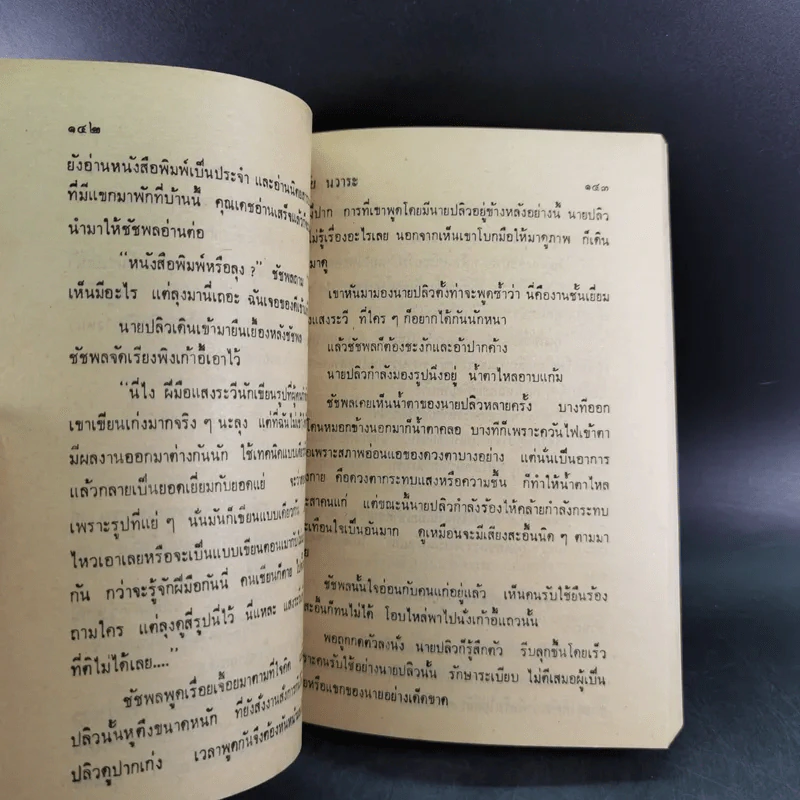 ๑๔๒
ยังอ่านหนังสือพิมพ์เป็นประจำ และอ่านนิตยสาร
ที่มีแขกมาพักที่บ้านนี้ คุณเดชอ่านเสร็จแล้ว
นำมาให้ชัชพลอ่านต่อ
“หนังสือพิมพ์หรือลุง ?” ชัชพลถาม
เห็นมีอะไร แต่ลุงมานี่เถอะ ฉันเจอของดีเข้า
นายปลิวเดินเข้ามายืนเยื้องหลังชัชพล
ชัชพลจัดเรียงพิงเก้าอี้เอาไว้
“นี่ไง ฝีมือแสงระวีนักเขียนรูปที่ผู้คน
เขาเขียนเก่งมากจริง ๆ นะลุง แต่ที่ฉันไม่เข้า
มีผลงานออกมาต่างกันนัก ใช้เทคนิคแบบเดียว
แล้วกลายเป็นยอดเยี่ยมกับยอดแย่
เพราะรูปที่แย่ ๆ นั่นมันก็เขียนแบบเดียวกัน
ไหวเอาเลยหรือจะเป็นแบบเขียนตอนเมา
กัน กว่าจะรู้จักฝีมือกันนี่ คนเขียนก็ตาย
ถามใคร แต่ลุงดูสี่รูปนี่ไว้ นี่แหละ แสงระวี
ที่ติไม่ได้เลย....”
ชัชพลพูดเรื่อยเจื้อยมาตามที่ใจคิด
ปลิวนั้นหูตึงขนาดหนัก ที่ยังสั่งงานสั่งการ
ปลิวดูปากเก่ง เวลาพูดกันจึงต้องหันหน้า
นวาระ
๑๔๓
ปาก การที่เขาพูดโดยมีนายปลิวอยู่ข้างหลังอย่างนี้ นายปลิว
ไม่รู้เรื่องอะไรเลย นอกจากเห็นเขาโบกมือให้มาดูภาพ ก็เดิน
มาดู
เขาหันมามองนายปลิวตั้งท่าจะพูดซ้ำว่า นี่คืองานชั้นเยี่ยม
แสงระวี ที่ใคร ๆ ก็อยากได้กันนักหนา
แล้วชัชพลก็ต้องชะงักและอ้าปากค้าง
นายปลิวกำลังมองรูปนิ่งอยู่ น้ำตาไหลอาบแก้ม
ชัชพลเคยเห็นน้ำตาของนายปลิวหลายครั้ง บางทีออก
โดนหมอกข้างนอกมาก็น้ำตาคลอ บางทีก็เพราะควันไฟเข้าตา
เพราะสภาพอ่อนแอของดวงตาบางอย่าง แต่นั่นเป็นอาการ
กาย คือดวงตากระทบแสงหรือความชื้น ก็ทำให้น้ำตาไหล
ตาคนแก่ แต่ขณะนี้นายปลิวกำลังร้องไห้คล้ายกำลังกระทบ
เทือนใจเป็นอันมาก ดูเหมือนจะมีเสียงสะอื้นนิด ๆ ตามมา
ชัชพลนั้นใจอ่อนกับคนแก่อยู่แล้ว เห็นคนรับใช้ยืนร้อง
สะอื้นก็ทนไม่ได้ โอบไหล่พาไปนั่งเก้าอี้แถวนั้น
พอถูกกดตัวลงนั่ง นายปลิวก็รู้สึกตัว รีบลุกขึ้นโดยเร็ว
เพราะคนรับใช้อย่างนายปลิวนั้น รักษาระเบียบ ไม่ตีเสมอผู้เป็น
หรือแขกของนายอย่างเด็ดขาด